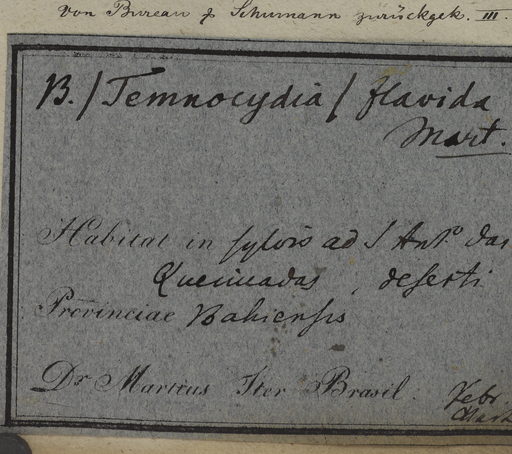 von Bureau & Schumann zurückgek. III.
B. / Temnocydia / flavida
Mart.
Habitat in sylvis ad S Antº das
Queimadas, deserti
Provinciae Bahiensis
Dr. Martius Iter Brasil.
Febr.
Mart